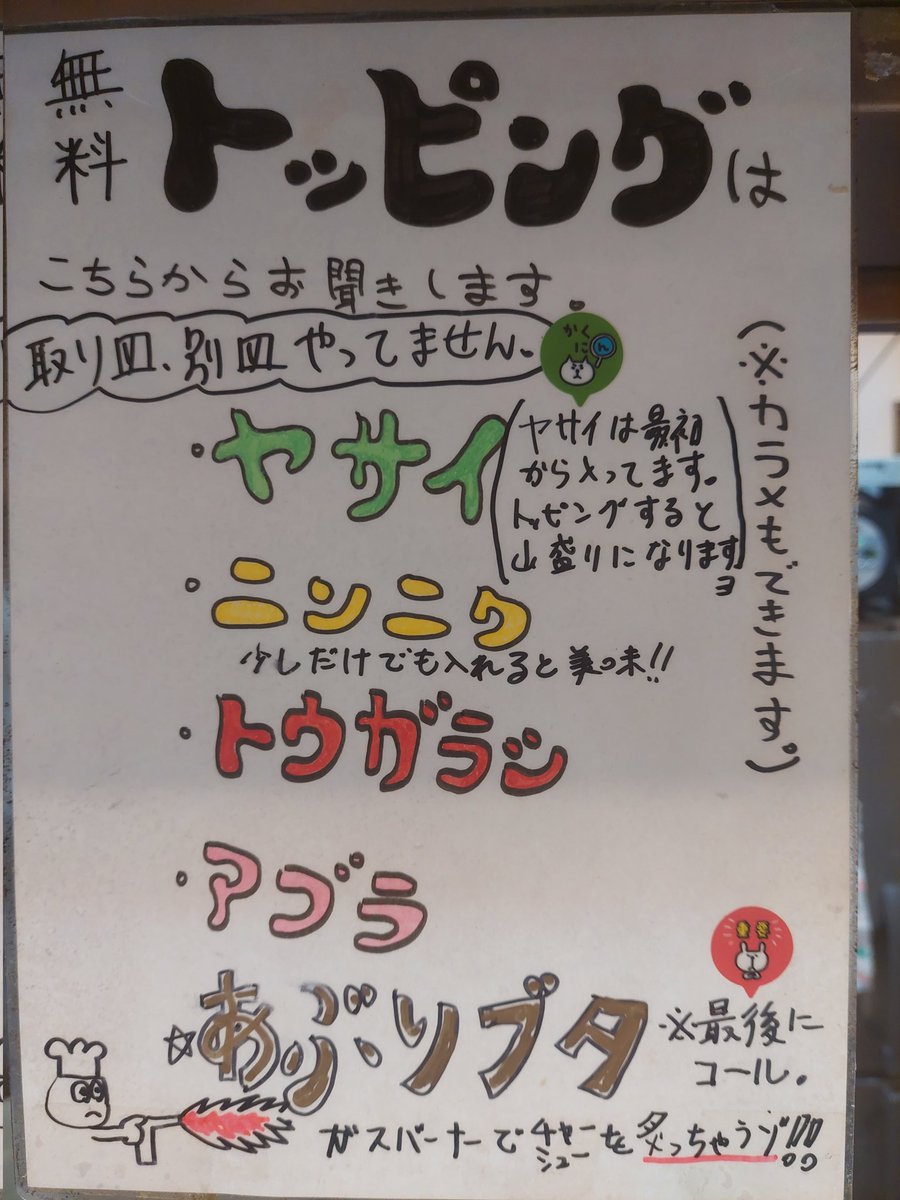 無料 トッピングは
こちらからお聞きします。
取り皿、別皿やってません。
かくにん
・ヤサイ
(ヤサイは最初
から入ってます。
トッピングすると
山盛りになります
ヨ)
・ニンニク
少しだけでも入れると美味!!
・トウガラシ
・アブラ
☆あぶりブタ
※最後に
コール。
ガスバーナーでチャーシューを炙っちゃうゾ!!!
(※カラメもできます。)